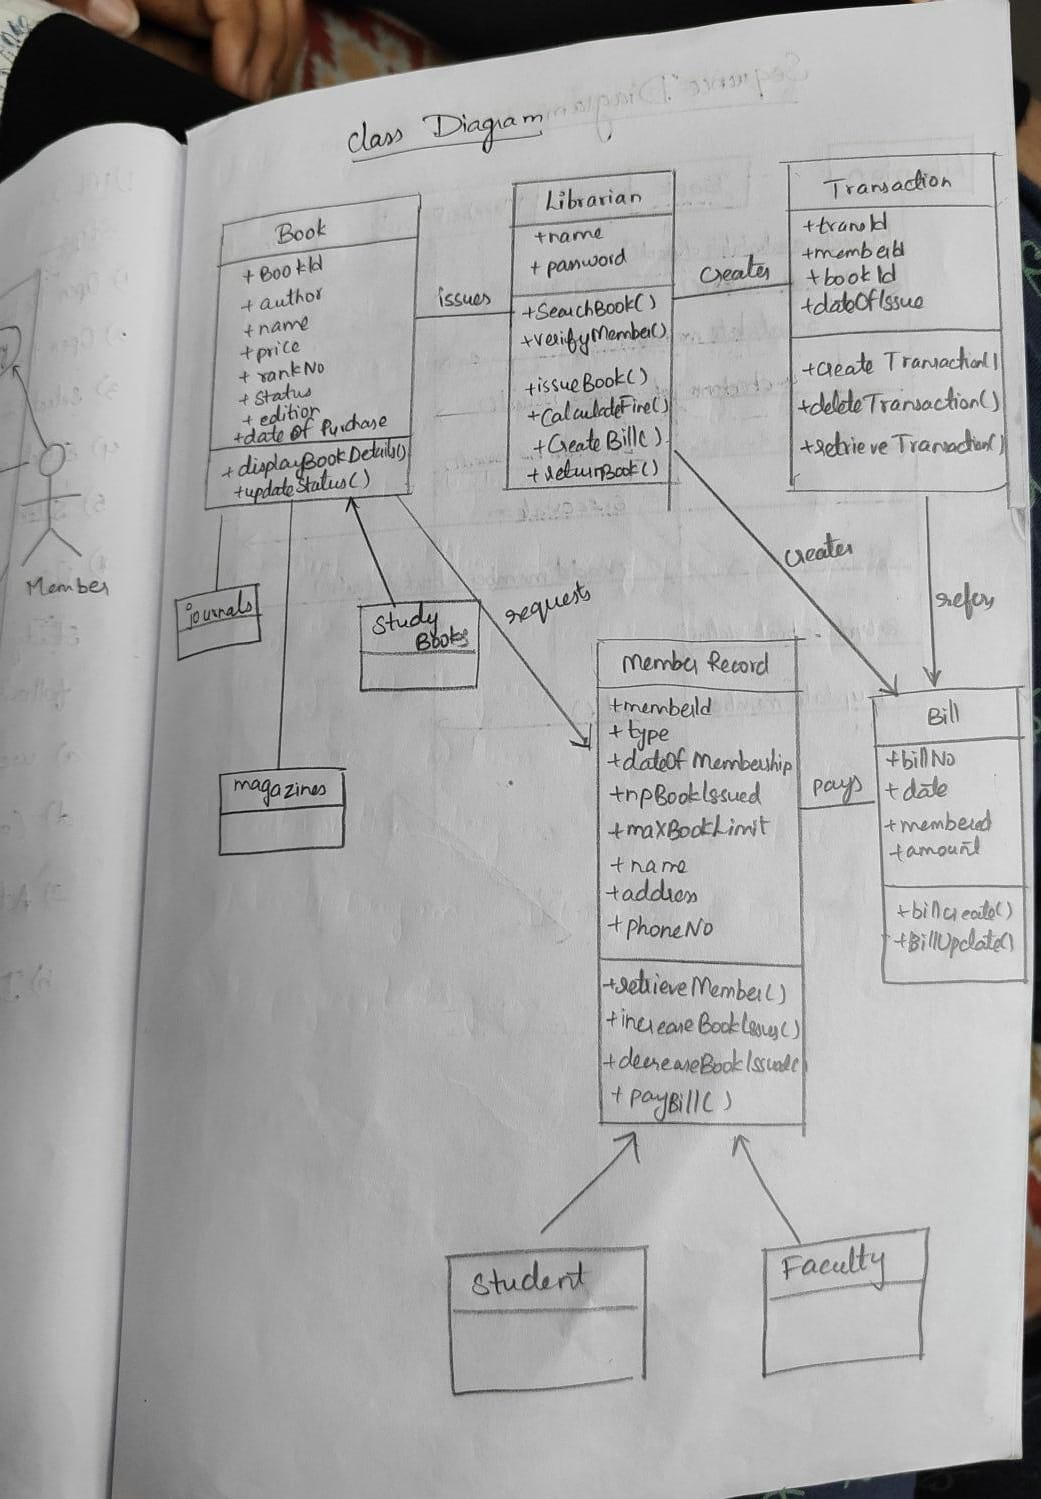 class Diagram
Book
+BookId
+author
+name
+price
+rankNo
+status
+edition
+date of Purchase
+displayBookDetails()
+updateStatus()
issues
Librarian
+name
+password
+SearchBook()
+verifyMember()
+issueBook()
+CalculateFine()
+Create Bill()
+returnBook()
creates
Transaction
+transId
+memberId
+book Id
+dateOfIssue
+create Transaction()
+delete Transaction()
+retrieve Transaction()
Member
journals
Study
Books
requests
creates
refers
magazines
Member Record
+memberId
+type
+dateOf Membership
+npBookIssued
+maxBookLimit
+name
+address
+phoneNo
+retrieveMember()
+increaseBookIssues()
+decreaseBookIssued(
+payBill()
pays
Bill
+billNo
+date
+amount
+billcreate()
+BillUpdate()
Student
Faculty